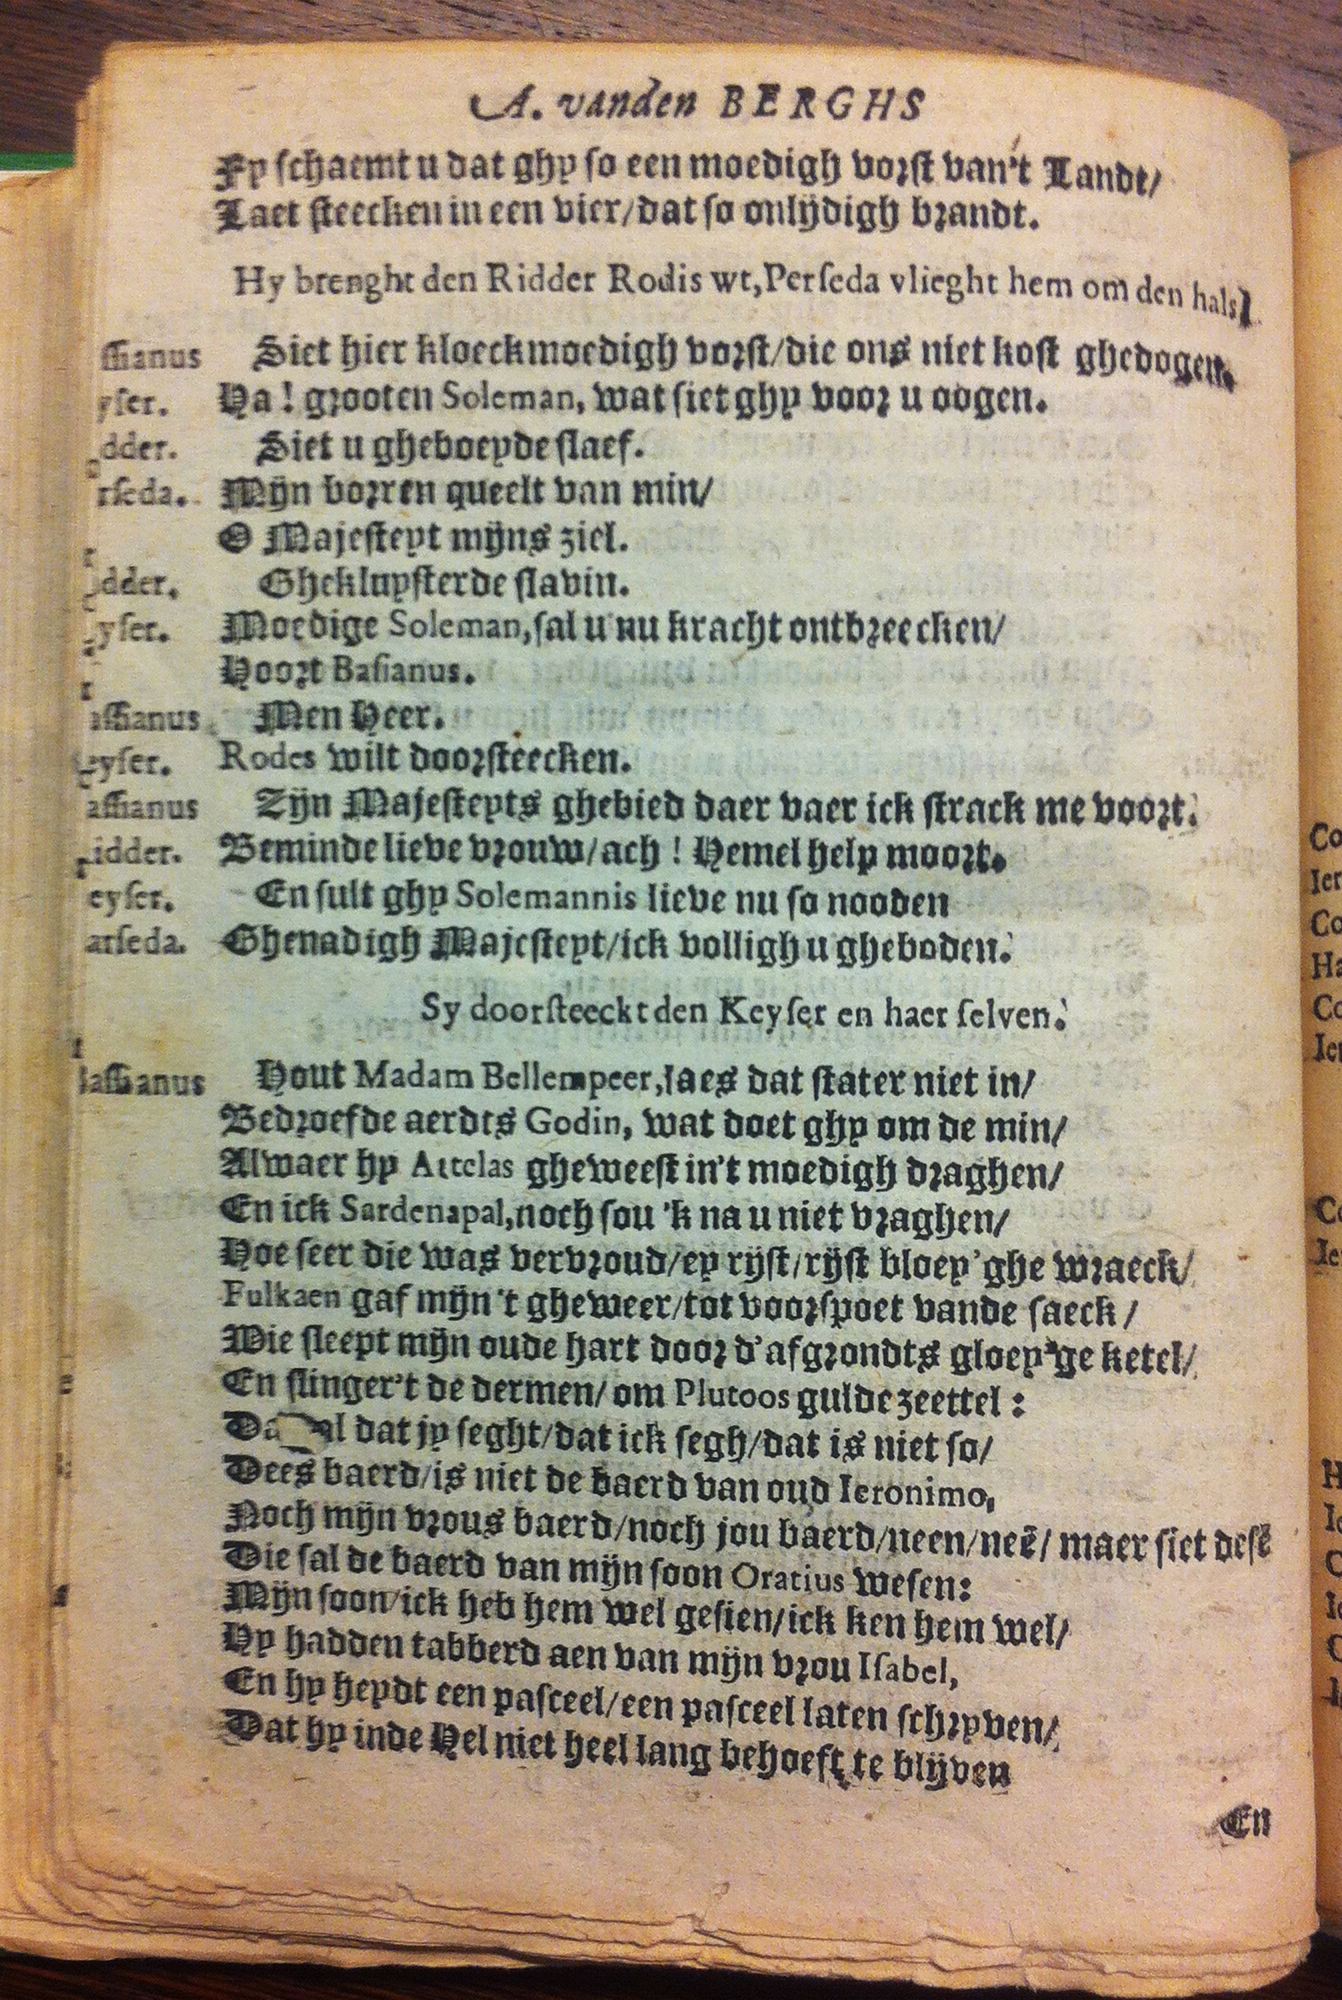 A. vanden BERGHS
Fy schaemt u dat ghy so een moedigh vorst van't Landt/
Laet steecken in een vier/dat so onlijdigh brandt.
Hy brenght den Ridder Rodis wt,Perseda vlieght hem om den hals.
ssianus Siet hier kloeckmoedigh vorst/die ons niet kost ghedogen.
yser. Ha! grooten Soleman, wat siet ghy voor u oogen.
dder. Siet u gheboeyde slaef.
rseda. Mijn vorren queelt van min/
O Majesteyt mijns ziel.
dder. Ghekluysterde slavin.
yser. Moedige Soleman,sal u nu kracht ontbreecken/
Hoort Basianus.
assianus Men Heer.
eyser. Rodes wilt doorsteecken.
assianus Zijn Majesteyts ghebied daer vaer ick strack me voort.
idder. Beminde lieve vrouw/ach! Hemel help moort.
eyser. En sult ghy Solemannis lieve nu so nooden
arseda. Ghenadigh Majesteyt/ick volligh u gheboden.
Sy doorsteeckt den Keyser en haer selven.
Bassianus Hout Madam Bellempeer,laes dat stater niet in/
Bedroefde aerdts Godin, wat doet ghy om de min/
Alwaer hy Attelas gheweest in't moedigh draghen/
En ick Sardenapal,noch sou 'k na u niet vraghen/
Hoe seer die was vervroud/ey rijst/rijst bloey'ghe wraeck/
Fulkaen gaf mijn 't gheweer/tot voorspoet vande saeck/
Wie sleept mijn oude hart door d'afgrondts gloey'ge ketel/
En slinger't de dermen/om Plutoos gulde zeettel:
dat jy seght/dat ick segh/dat is niet so/
Dees baerd/is niet de baerd van oud Ieronimo,
Noch mijn vrous baerd/noch jou baerd/neen/neē/ maer siet desē
Die sal de baerd van mijn soon Oratius wesen:
Mijn soon/ick heb hem wel gesien/ick ken hem wel/
Hy hadden tabberd aen van mijn vrou Isabel,
En hy heydt een pasceel/een pasceel laten schryven/
Dat hy inde Hel niet heel lang behoeft te blijven
En